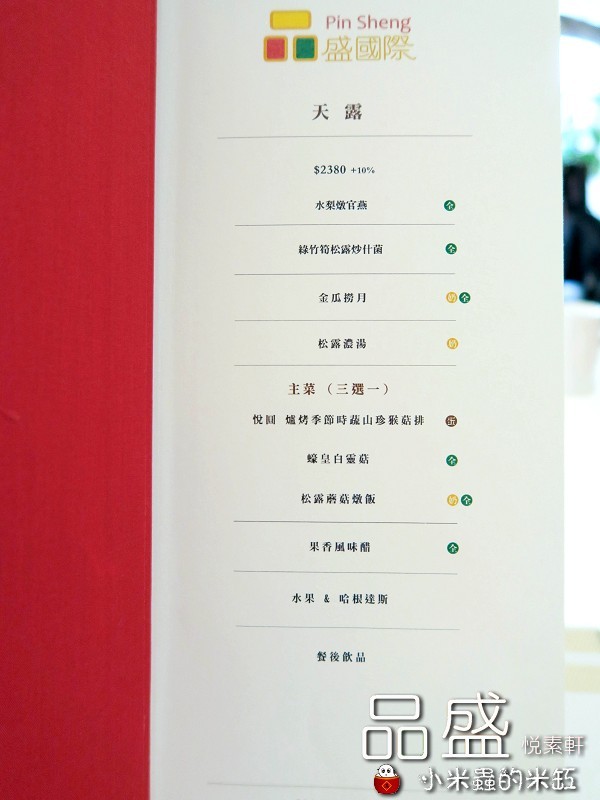 Pin Sheng
盛國際
天露
$2380 +10%
水梨燉官燕 全
綠竹筍松露炒什菌 全
金瓜撈月 奶 全
松露濃湯 奶
主菜（三選一）
悅圓 爐烤季節時蔬山珍猴菇排
蠔皇白靈菇 全
松露蘑菇燉飯 奶 全
果香風味醋 全
水果 & 哈根達斯
餐後飲品
品盛
悅素軒
小米蟲的米缸